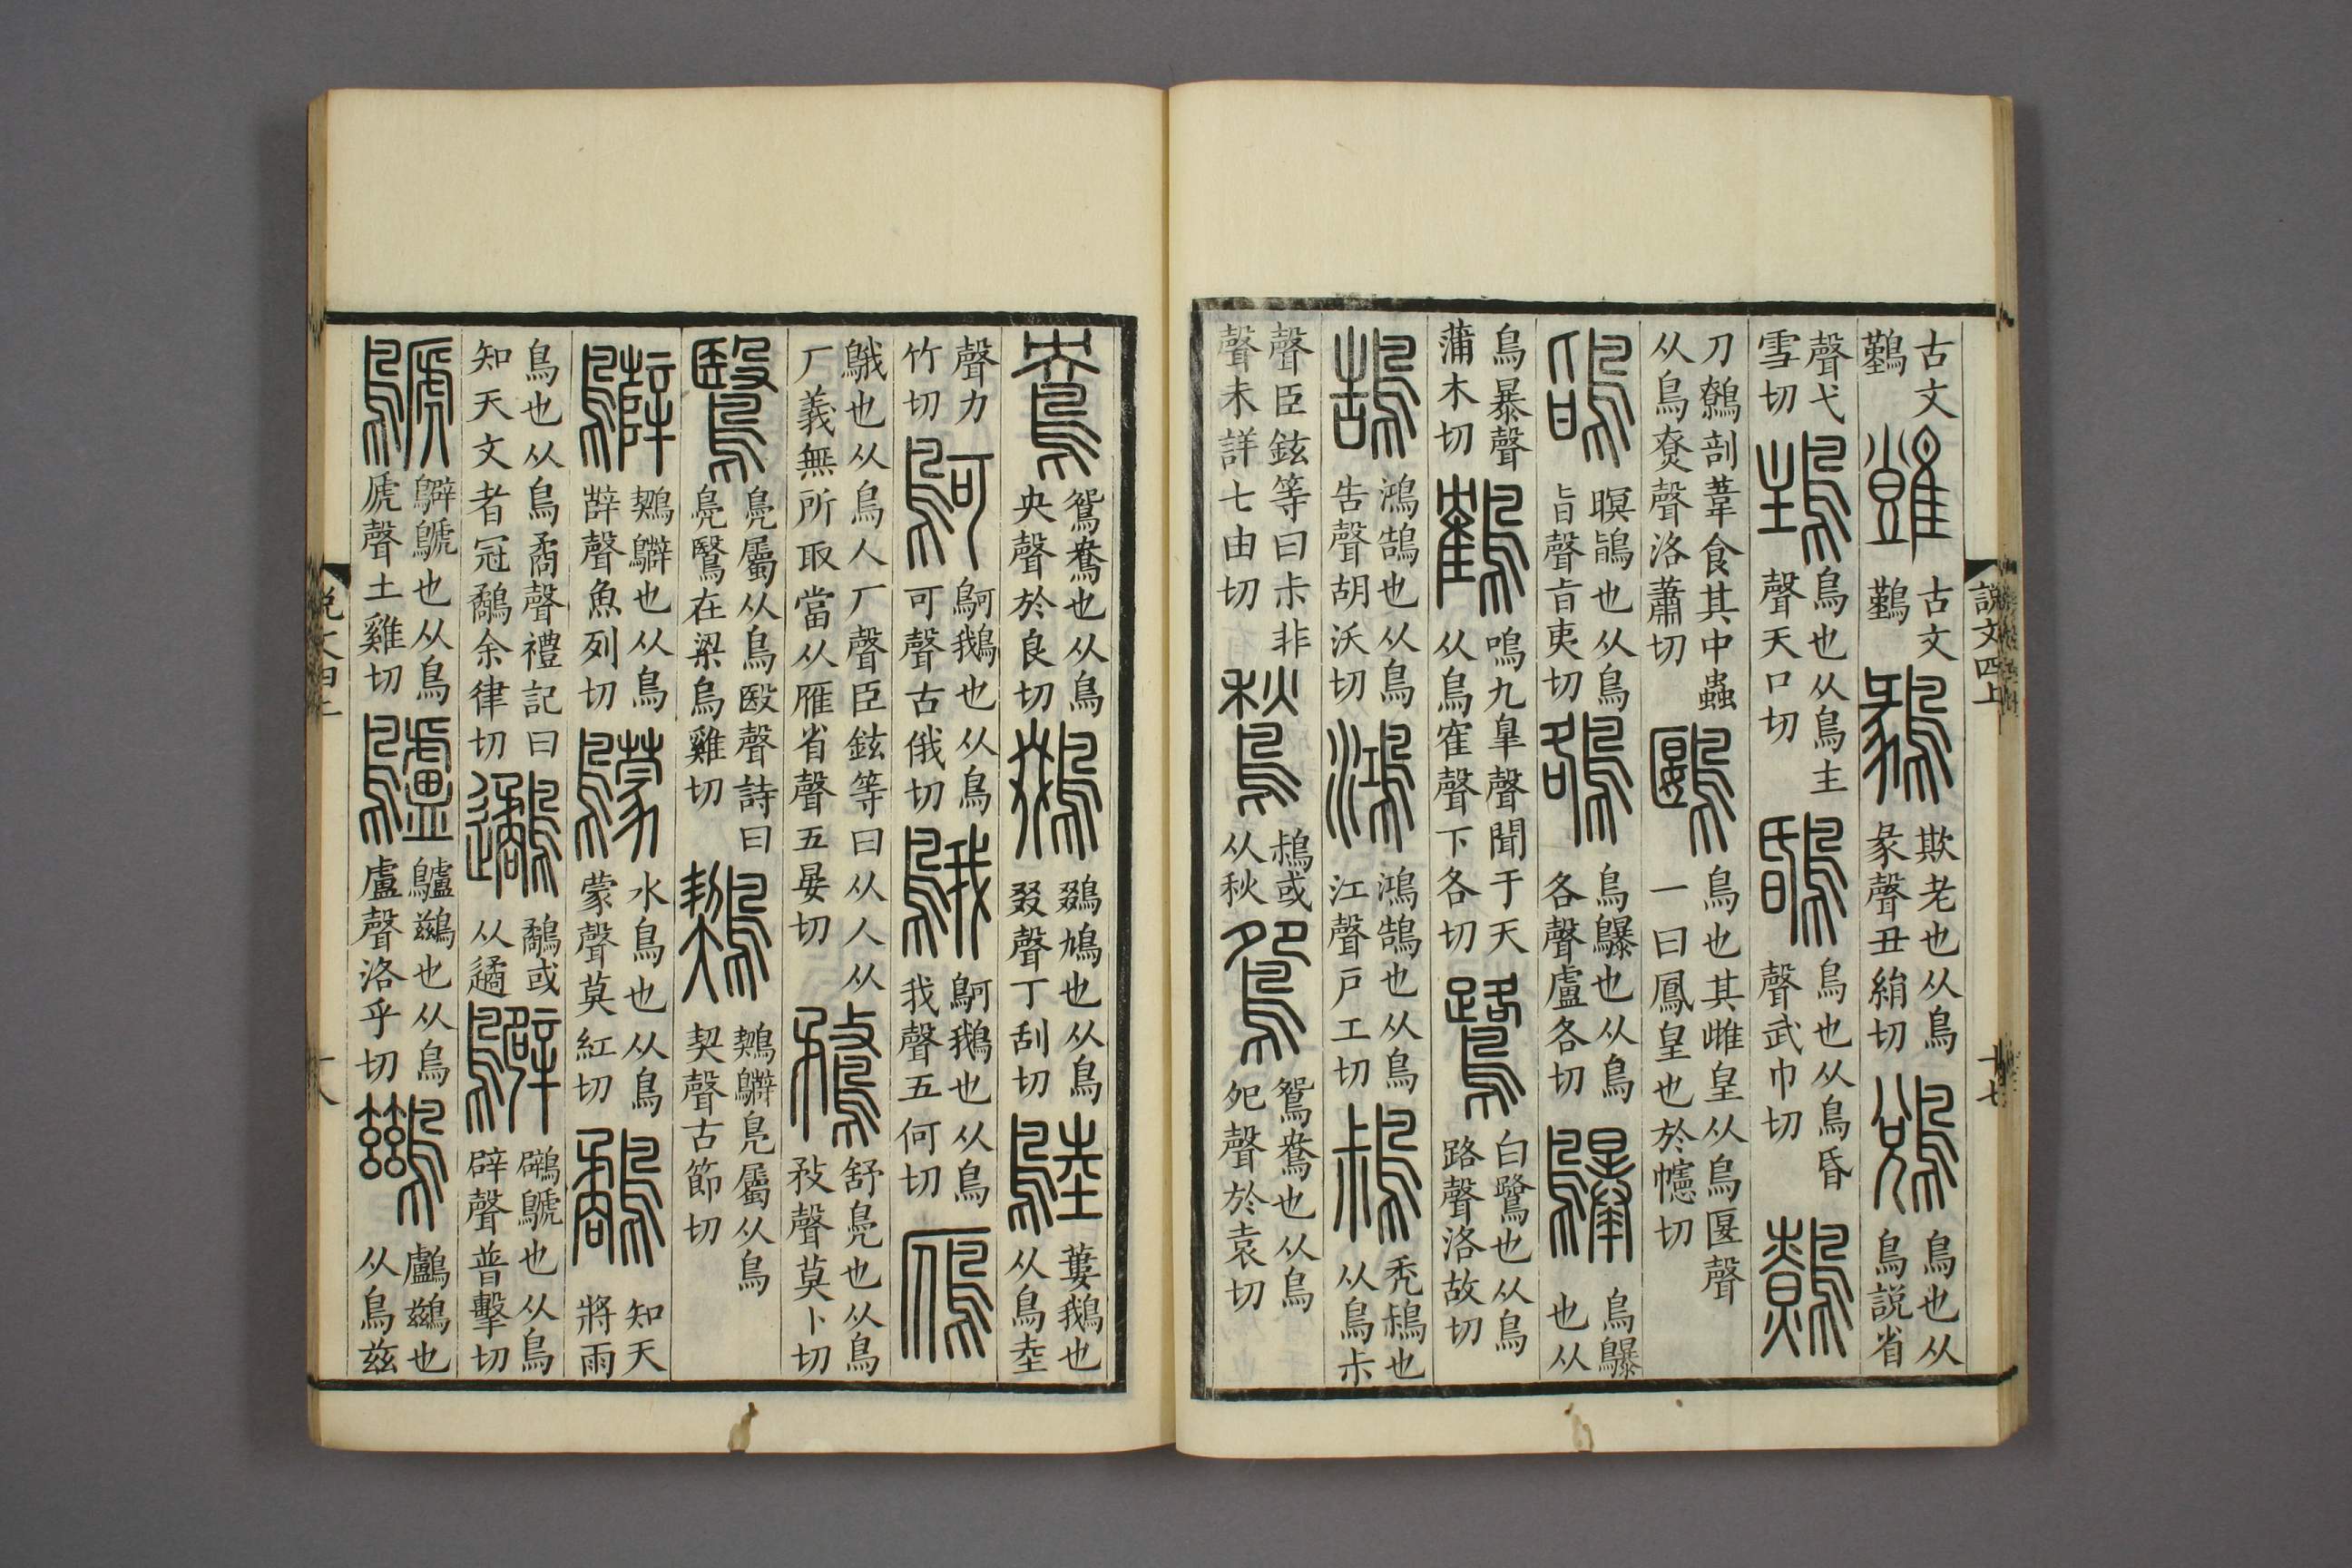 古文鷬 難 古文鷬 鶨 欺老也从鳥彖聲丑絹切 䳎 鳥也从鳥說省
聲弋雪切 䳝 鳥也从鳥主聲天口切 鶛 鳥也从鳥昏聲武巾切 鷯
刀鷯剖葦食其中蟲从鳥尞聲洛蕭切 鶠 鳥也其雌皇从鳥匽聲一曰鳳皇也於幰切
鴲 瞑鴲也从鳥旨聲旨夷切 鵅 鳥鸔也从鳥各聲盧各切 鸔 鳥鸔也从
鳥暴聲蒲木切 鶴 鳴九皋聲聞于天从鳥隺聲下各切 鷺 白鷺也从鳥路聲洛故切
鵠 鴻鵠也从鳥告聲胡沃切 鴻 鴻鵠也从鳥江聲戶工切 䳕 禿䳕也从鳥尗
聲臣鉉等曰尗非聲未詳七由切 鶖 䳕或从秋 鴛 鴛鴦也从鳥夗聲於袁切
說文四上 十七
鴦 鴛鴦也从鳥央聲於良切 鵽 鵽鳩也从鳥叕聲丁刮切 鵱 蔞鵝也从鳥坴
聲力竹切 鴚 鴚鵝也从鳥可聲古俄切 鵝 鴚鵝也从鳥我聲五何切 鴈
鵝也从鳥人厂聲臣鉉等曰从人从厂義無所取當从雁省聲五晏切 鶩 舒鳧也从鳥敄聲莫卜切
鷖 鳧屬从鳥殹聲詩曰鳧鷖在梁烏雞切 䳶 䳶𪇆鳧屬从鳥契聲古節切
𪇆 䳶𪇆也从鳥辥聲魚列切 鸏 水鳥也从鳥蒙聲莫紅切 鷸 知天將雨
鳥也从鳥矞聲禮記曰知天文者冠鷸余律切 鷸或从遹 鸊 鸊鷉也从鳥辟聲普擊切
鷉 鸊鷉也从鳥虒聲土雞切 鸕 鸕鷀也从鳥盧聲洛乎切 鷀 鸕鷀也从鳥兹
說文四上 十八